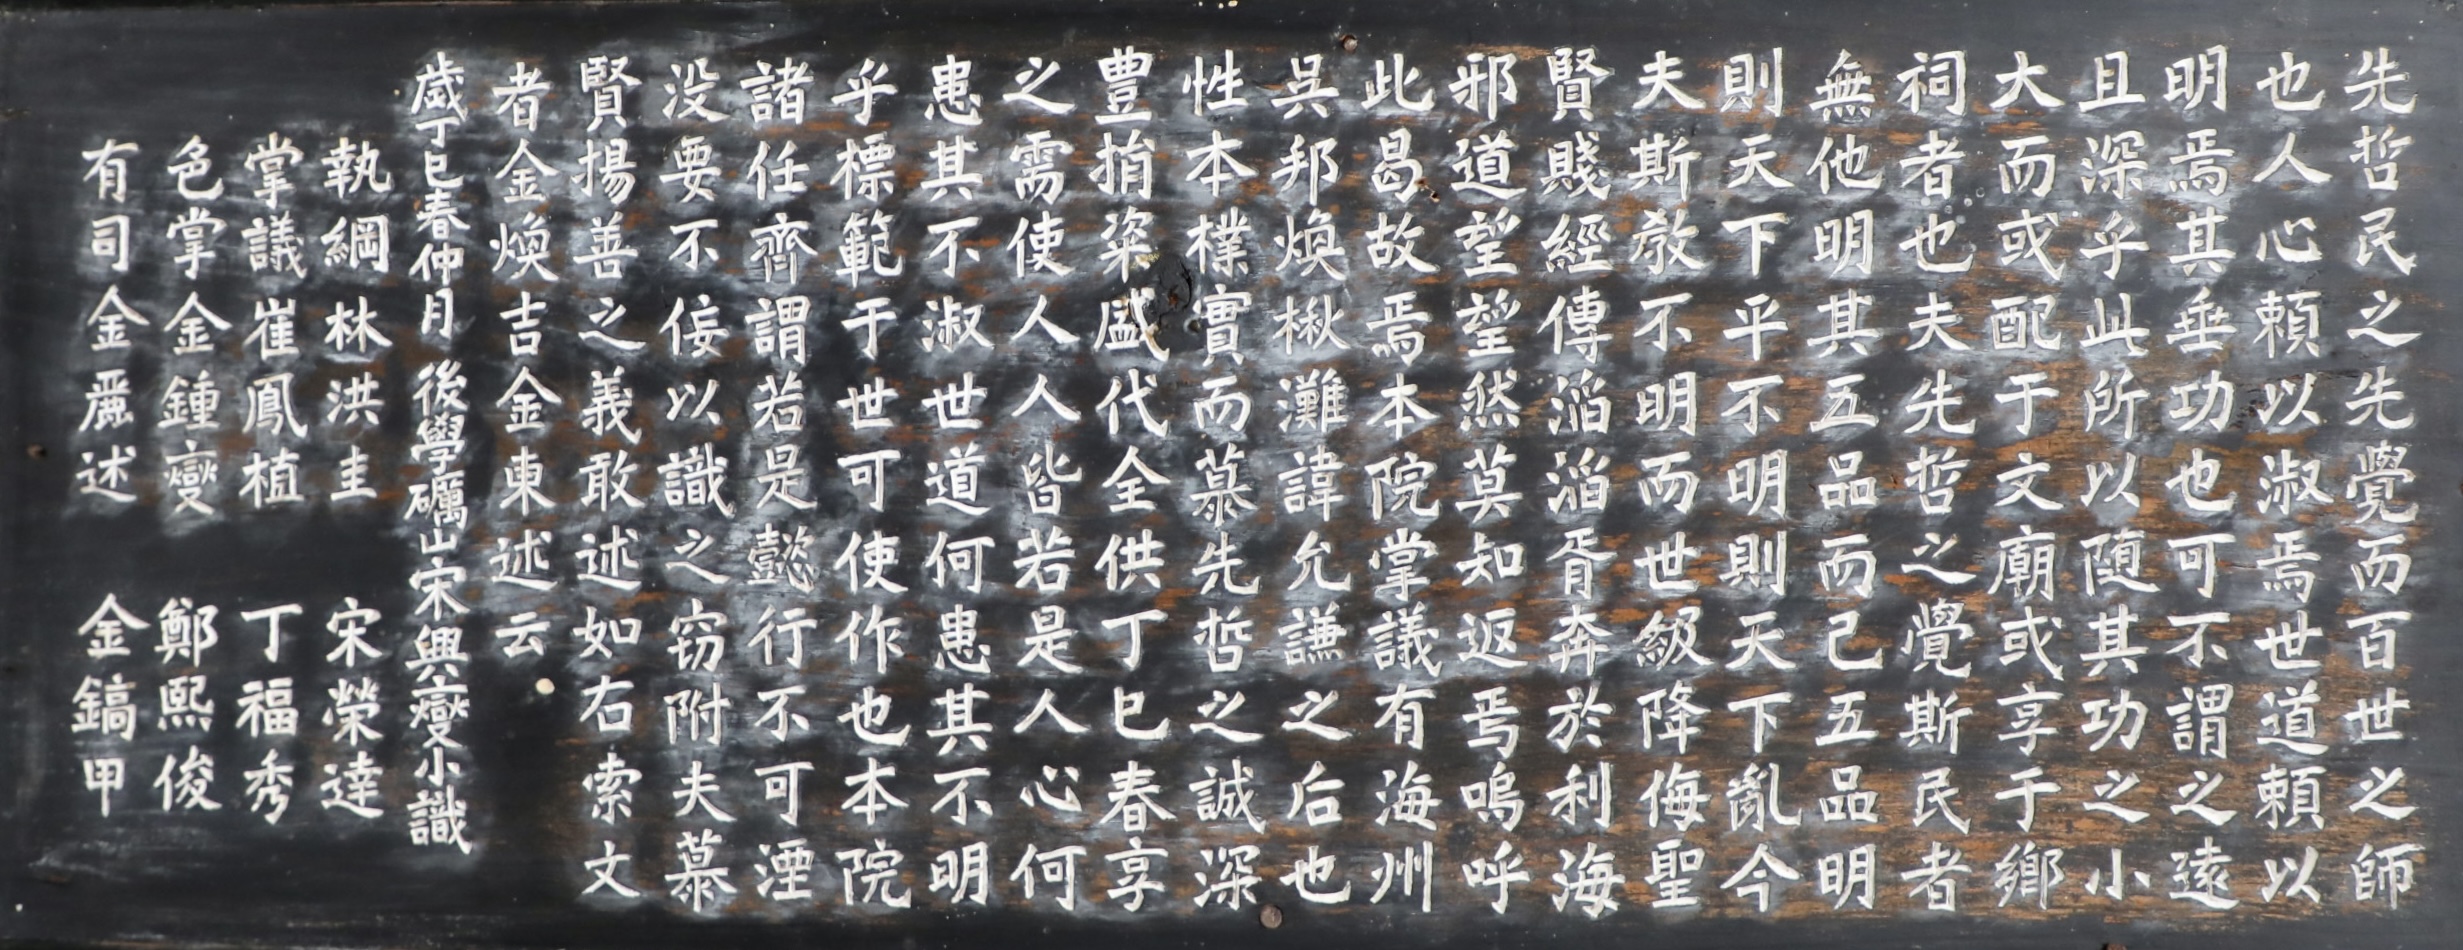 先哲民之先覺而百世之師
也人心賴以淑焉世道賴以
明焉其垂功也可不謂之遠
且深乎此所以随其功之小
大而或配于文廟或享于鄉
祠者也夫先哲之覺斯民者
無他明其五品而己五品明
則天下平不明則天下亂今
夫斯教不明而世級降侮聖
賢賤經傳滔滔胥奔於利海
邪道望望然莫知返焉嗚呼
此曷故焉本院掌議有海州
吳邦煥楸灘諱允謙之后也
性本樸實而慕先哲之誠深
豊捐粢盛代全供丁巳春享
之需使人人皆若是人心何
患其不淑世道何患其不明
乎標範于世可使作也本院
諸任齊謂若是懿行不可湮
没要不侫以識之窃附夫慕
賢揚善之義敢述如右索文
者金煥吉金東述云
歲丁巳春仲月 後學礪山宋興燮小識
執綱 林洪圭 宋榮達
掌議 崔鳳植 丁福秀
色掌 金鍾燮 鄭熙俊
有司 金麗述 金鎬甲